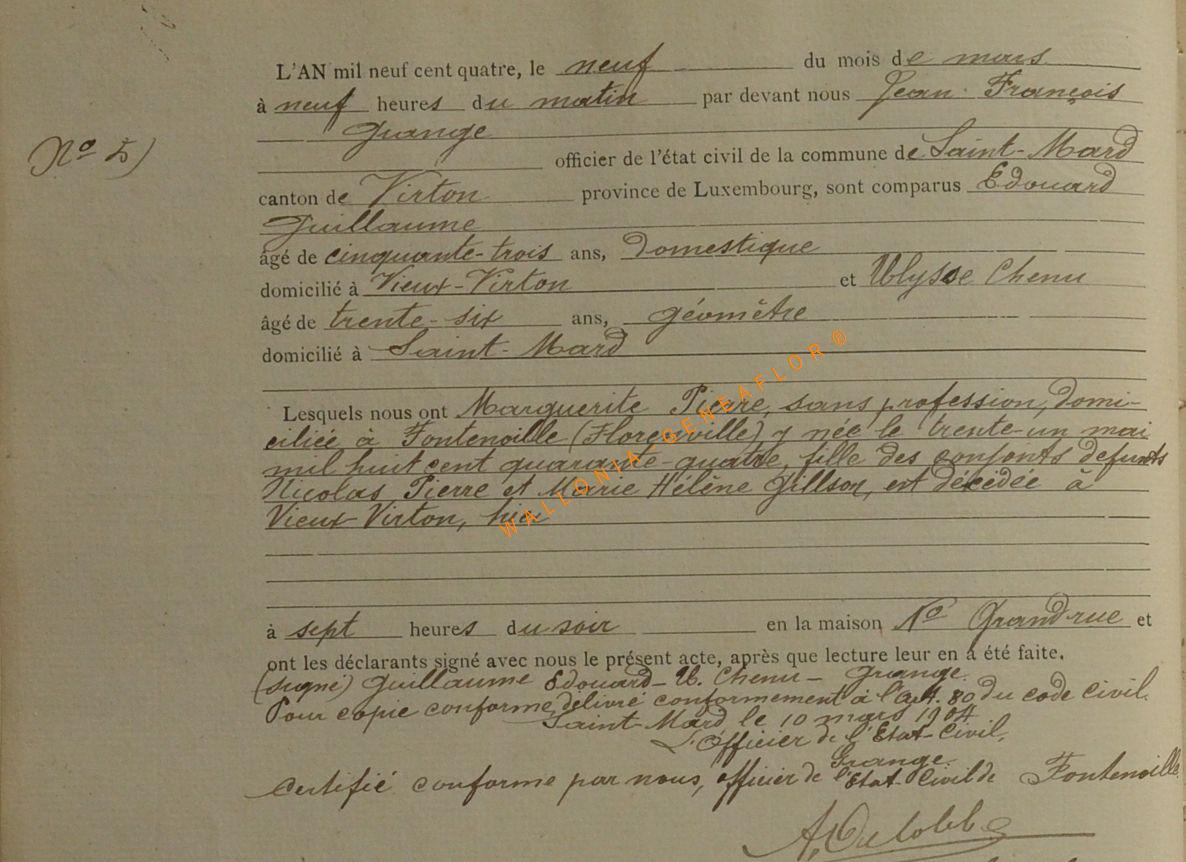 L'AN mil neuf cent quatre, le neuf du mois de mars
à neuf heures du matin par devant nous Jean François
Grange
No 5)
officier de l'état civil de la commune de Saint-Mard
canton de Virton province de Luxembourg, sont comparus Edouard
Guillaume
âgé de cinquante-trois ans, domestique
domicilié à Vieux-Virton et Ulysse Chenu
âgé de trente-six ans, géomètre
domicilié à Saint-Mard
Lesquels nous ont Marguerite Pierre, sans profession, domi-
ciliée à Fontenoille (Florenville) y née le trente-un mai
mil huit cent quarante-quatre, fille des conjonts defunts
Nicolas Pierre et Marie Hélène Gillson, est décédée à
Vieux Virton, hier
WALLONIA GENEAFLOR ®
à sept heures du soir en la maison No Grand'rue et
ont les déclarants signé avec nous le présent acte, après que lecture leur en a été faite.
(signé) Guillaume Edouard - U. Chenu - Grange.
Pour copie conforme délivré conformement à l'art. 80 du code civil.
Saint-Mard le 10 mars 1904
L'Officier de l'Etat-Civil,
Grange.
Certifié conforme par nous, officier de l'Etat-Civil de Fontenoille.